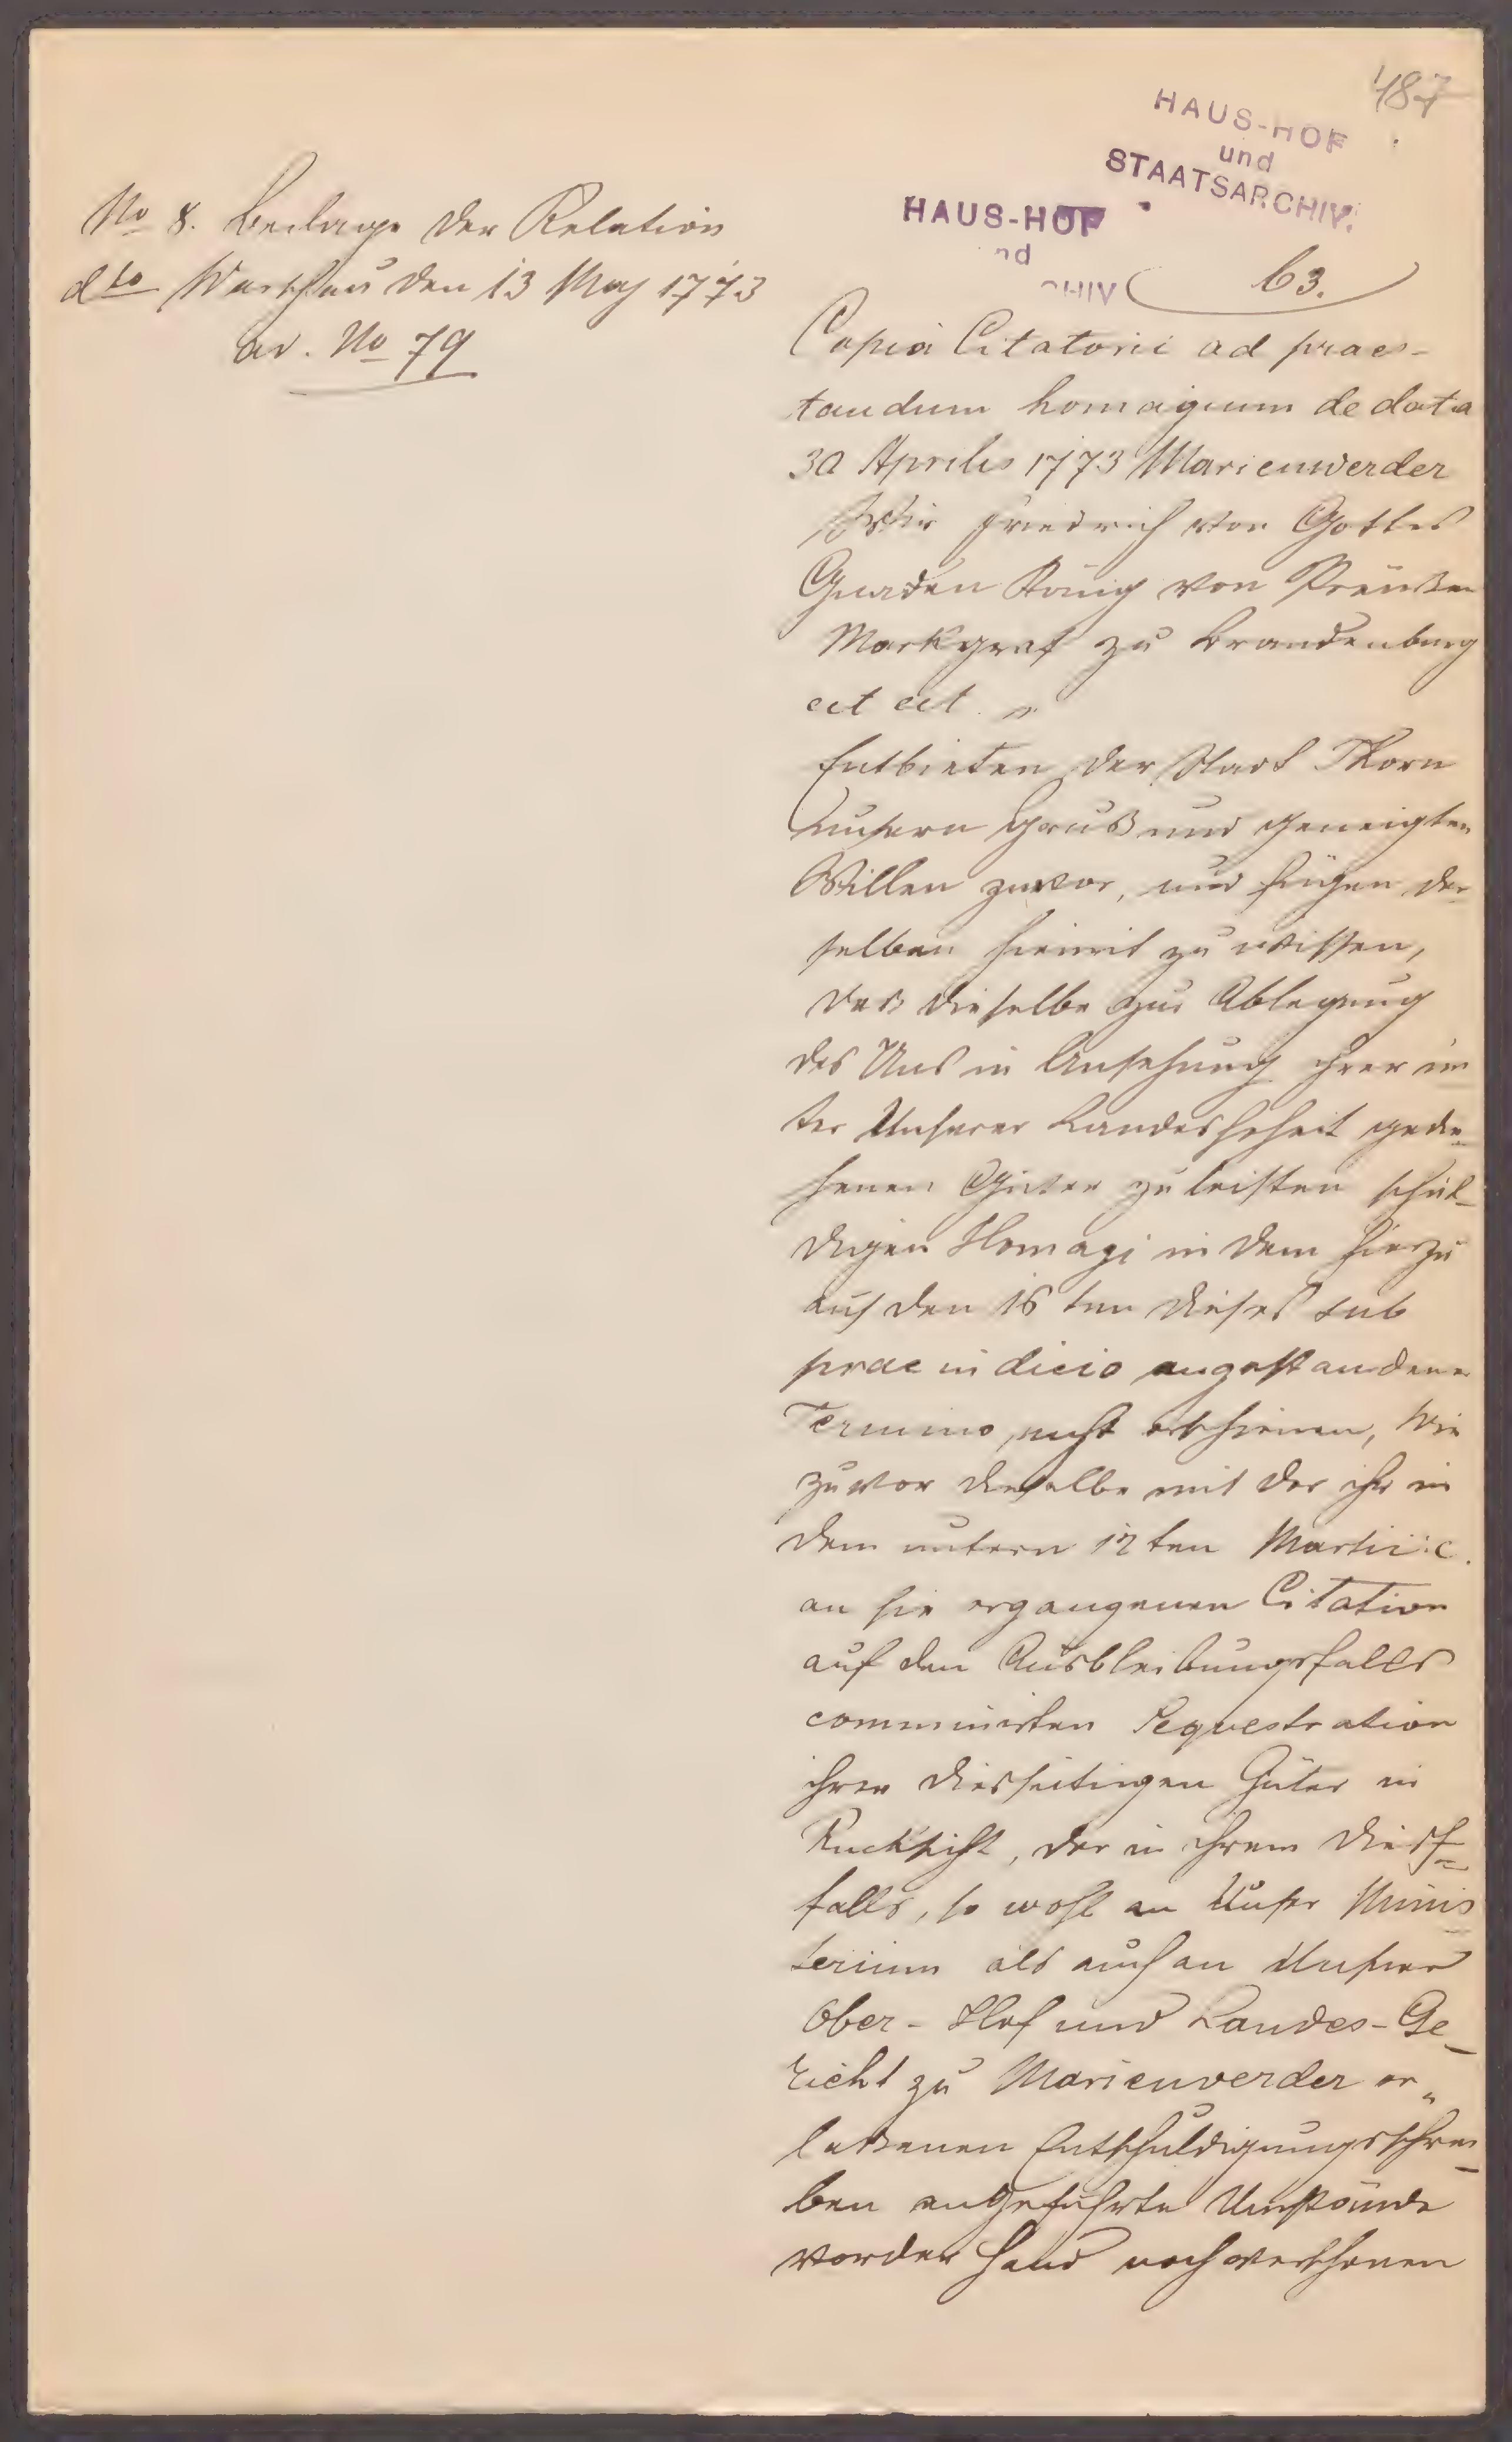 487
HAUS-HOF
und
STAATSARCHIV.
HAUS-HOF
nd
CHIV
63.
No 8. Beilage der Relation
dto Warschau den 13 May 1773
ad. No 79
Copia Citatorii ad praes-
tandum homagium de dato
30 Aprilis 1773 Marienwerder
Wir Friedrich von Gottes
Gnaden König von Preußen
Markgraf zu Brandenburg
cet cet
Entbieten der Stadt Thorn
unsern Gruß und geneigten
Willen zuvor, und fügen der-
selben hiemit zu wissen,
daß dieselbe zur Ablegung
des Uns in Ansehung ihrer un
ter Unserer Landeshoheit gedie-
henen Güter zu leisten schul-
digen Homagi in dem hierzu
auf den 16 ten dieses sub
praeiudicio angestandenen
Termino nicht erschienen, Wie
zuvor dieselbe mit der ihr in
dem untern 12 ten Martii c.
an sie ergangenen Citation
auf den Ausbleibungsfalls
comminirten Sequestration
ihrer diesseitigen Güter in
Rucksicht, der in ihrem dies-
falls, so wohl an Unser Minis
terium als auch an Unser
Ober-Hof und Landes-Ge-
richt zu Marienwerder er„
laßenen Entschuldigungsschrei-
ben angeführte Umstände
vorder Hand noch verschonen